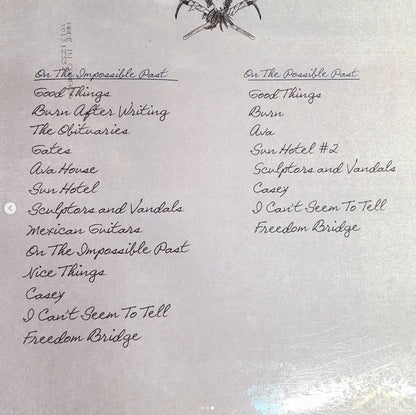 On The Impossible Past
Good Things
Burn After Writing
The Obituaries
Gates
Ava House
Sun Hotel
Sculptors and Vandals
Mexican Guitars
On The Impossible Past
Nice Things
Casey
I Can't Seem To Tell
Freedom Bridge
On The Possible Past
Good Things
Burn
Ava
Sun Hotel #2
Sculptors and Vandals
Casey
I Can't Seem To Tell
Freedom Bridge